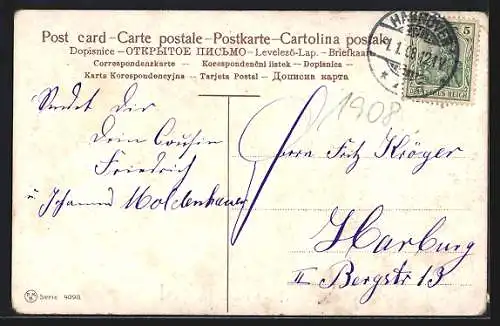 Post card - Carte postale - Postkarte - Cartolina postale
Dopisnice - ОТКРЫТОЕ ПИСЬМО - Levelező-Lap. - Briefkaart
Correspondenzkarte - Korespondenční listek - Dopisnica -
Karta Korespondencyjna - Tarjeta Postal - Дописна карта
HANNOVER
1.1.08.12-1V.
5
DEUTSCHES REICH
1908
Sendet Dir
Dein Cousin
Friedrich
u Johannes Moldenhauer
Herrn Fritz Kröger
Harburg
II Bergstr 13
Serie 4098.